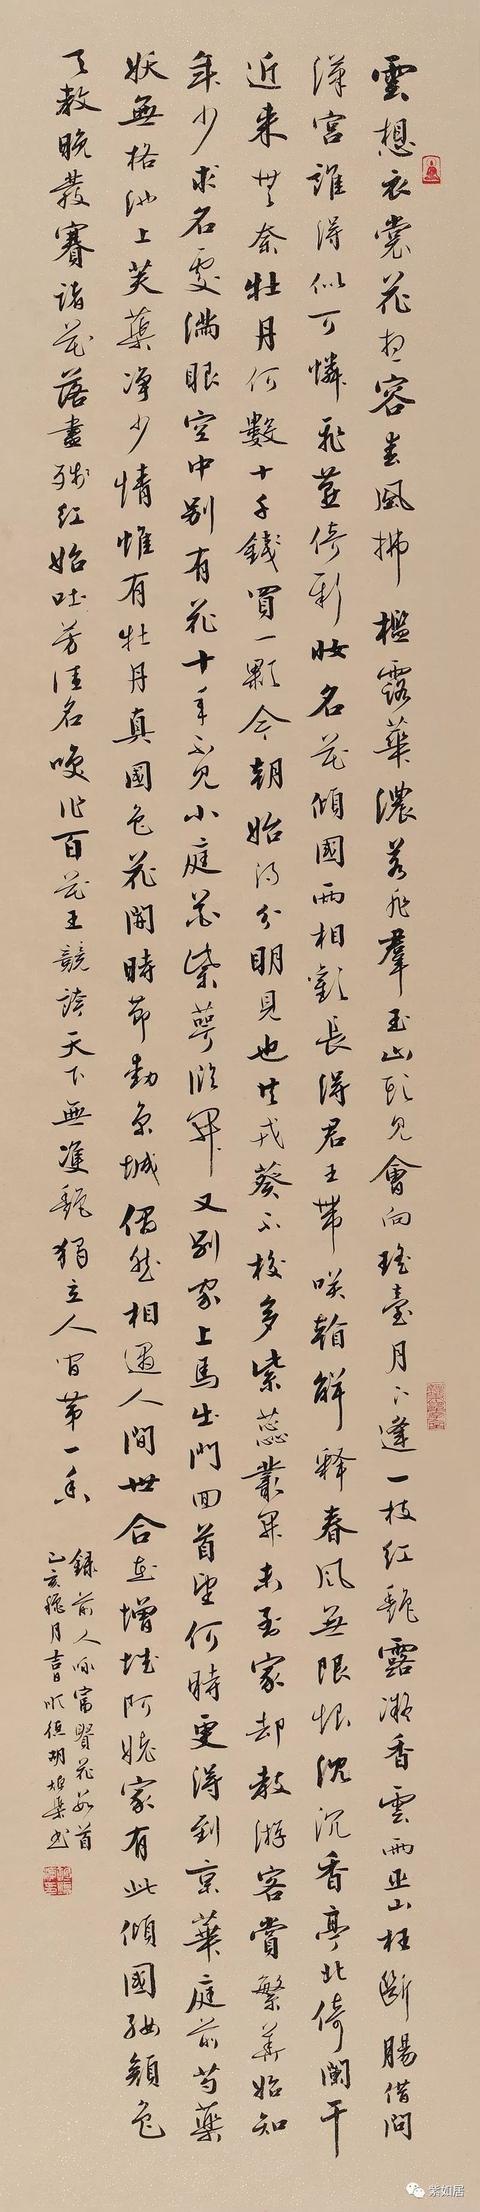 雲想衣裳花想容春風拂檻露華濃若非群玉山頭見會向瑤臺月下逢一枝紅艷露凝香雲雨巫山枉斷腸借問
漢宮誰得似可憐飛燕倚新妝名花傾國兩相歡長得君王帶咲解釋春風無限恨沈沉香亭北倚闌干
近來無奈牡丹何數十千錢買一顆今朝始得分明見也共戎葵不校多紫蕊叢開未到家却教游客賞繁華始知
年少求名處滿眼空中別有花十年不見小庭花紫萼臨開又別家上馬出門回首望何時更得到京華庭前芍藥
妖無格池上芙蕖淨少情惟有牡丹真國色花開時節動京城偶然相遇人間世合在增城阿姥家有此傾國好顏色
天教晚發賽諸花落盡殘紅始吐芳佳名喚作百花王競誇天下無雙艷獨立人間第一香
錄前人咏富貴花數首
乙亥穐月吉日順德胡
紫如居